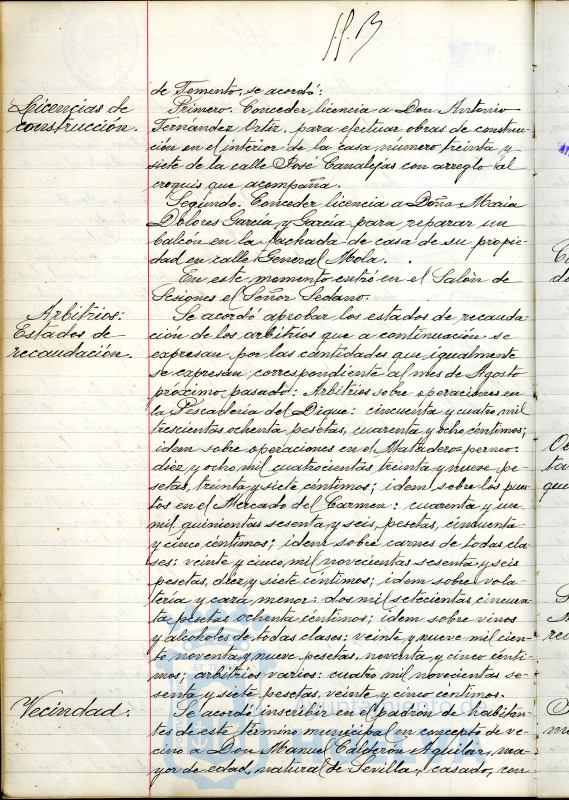 de Fomento, se acordó:
Licencias de
construcción.
Primero. Conceder licencia a Don Antonio
Fernandez Ortiz, para efectuar obras de construc-
ción en el interior de la casa numero treinta y
siete de la calle José Canalejas con arreglo al
croquis que acompaña.
Segundo. Conceder licencia a Doña Maria
Dolores García y García para reparar un
balcón en la fachada de casa de su propie-
dad en calle General Mola.
En este momento entró en el Salón de
Sesiones el Señor Sedano.
Arbitrios:
Estados de
recaudación.
Se acordó aprobar los estados de recauda-
ción de los arbitrios que a continuación se
expresan por las cantidades que igualmente
se expresan, correspondiente al mes de Agosto
próximo pasado: Arbitrios sobre operaciones en
la Pescaderia del Dique: cincuenta y cuatro mil
trescientas ochenta pesetas, cuarenta y ocho céntimos;
idem sobre operaciones en el Matadero
diez y ocho mil cuatrocientas treinta y nueve pe-
setas, treinta y siete céntimos; idem sobre los pues-
tos en el Mercado del Carmen: cuarenta y un
mil quinientas sesenta y seis, pesetas, cincuenta
y cinco céntimos; idem sobre carnes de todas cla-
ses: veinte y cinco mil novecientas sesenta y seis
pesetas, diez y siete céntimos; idem sobre vola-
tería y caza menor: dos mil setecientas cincuen-
ta pesetas ochenta céntimos; idem sobre vinos
y alcoholes de todas clases: veinte y nueve mil cien-
to noventa y nueve pesetas, noventa y cinco cénti-
mos; arbitrios varios: cuatro mil novecientas se-
senta y siete pesetas, veinte y cinco céntimos.
Vecindad.
Se acordó inscribir en el padrón de habitan-
tes de este término municipal en concepto de ve-
cino a Don Manuel Calderón Aguilar, ma-
yor de edad, natural de Sevilla, casado, con
Ayuntamiento de
HUELVA